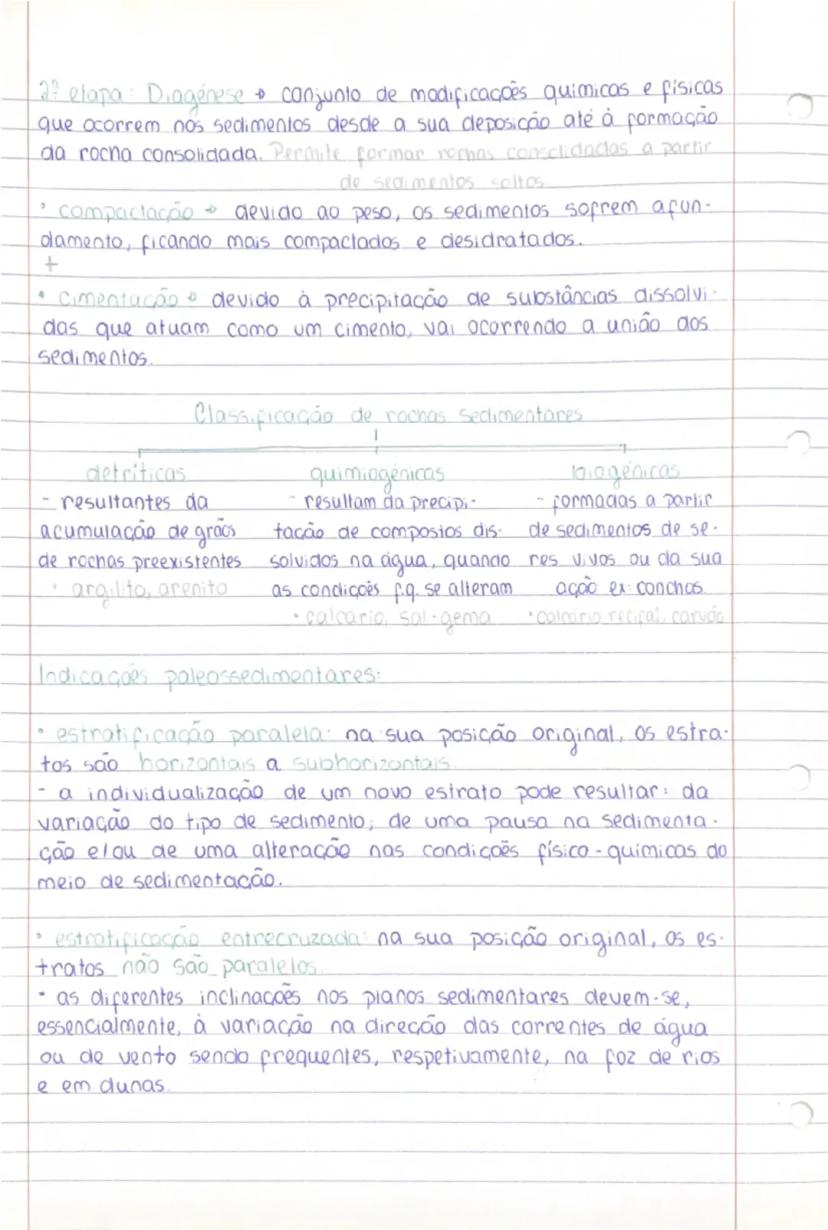 2ª etapa: Diagénese → conjunto de modificações químicas e físicas
que ocorrem nos sedimentos desde a sua deposição até à formação
da rocha consolidada. Permite formar rochas consolidadas a partir
de sedimentos soltos.
• compactação → devido ao peso, os sedimentos sofrem afun-
damento, ficando mais compactados e desidratados.
+
• cimentação → devido à precipitação de substâncias dissolvi-
das que atuam como um cimento, vai ocorrendo a união dos
sedimentos.
Classificação de rochas sedimentares
detríticas quimiogénicas biogénicas
- resultantes da - resultam da precipi- - formadas a partir
acumulação de grãos tação de compostos dis- de sedimentos de se-
de rochas preexistentes solvidos na água, quando res vivos ou da sua
• argilito, arenito as condições f.q. se alteram ação ex: conchas
• calcário, sal-gema • calcário recifal, carvão
Indicações paleossedimentares:
• estratificação paralela: na sua posição original, os estra-
tos são horizontais a subhorizontais.
- a individualização de um novo estrato pode resultar: da
variação do tipo de sedimento; de uma pausa na sedimenta-
ção e/ou de uma alteração nas condições físico-químicas do
meio de sedimentação.
• estratificação entrecruzada: na sua posição original, os es-
tratos não são paralelos.
• as diferentes inclinações nos planos sedimentares devem-se,
essencialmente, à variação na direção das correntes de água
ou de vento sendo frequentes, respetivamente, na foz de rios
e em dunas.